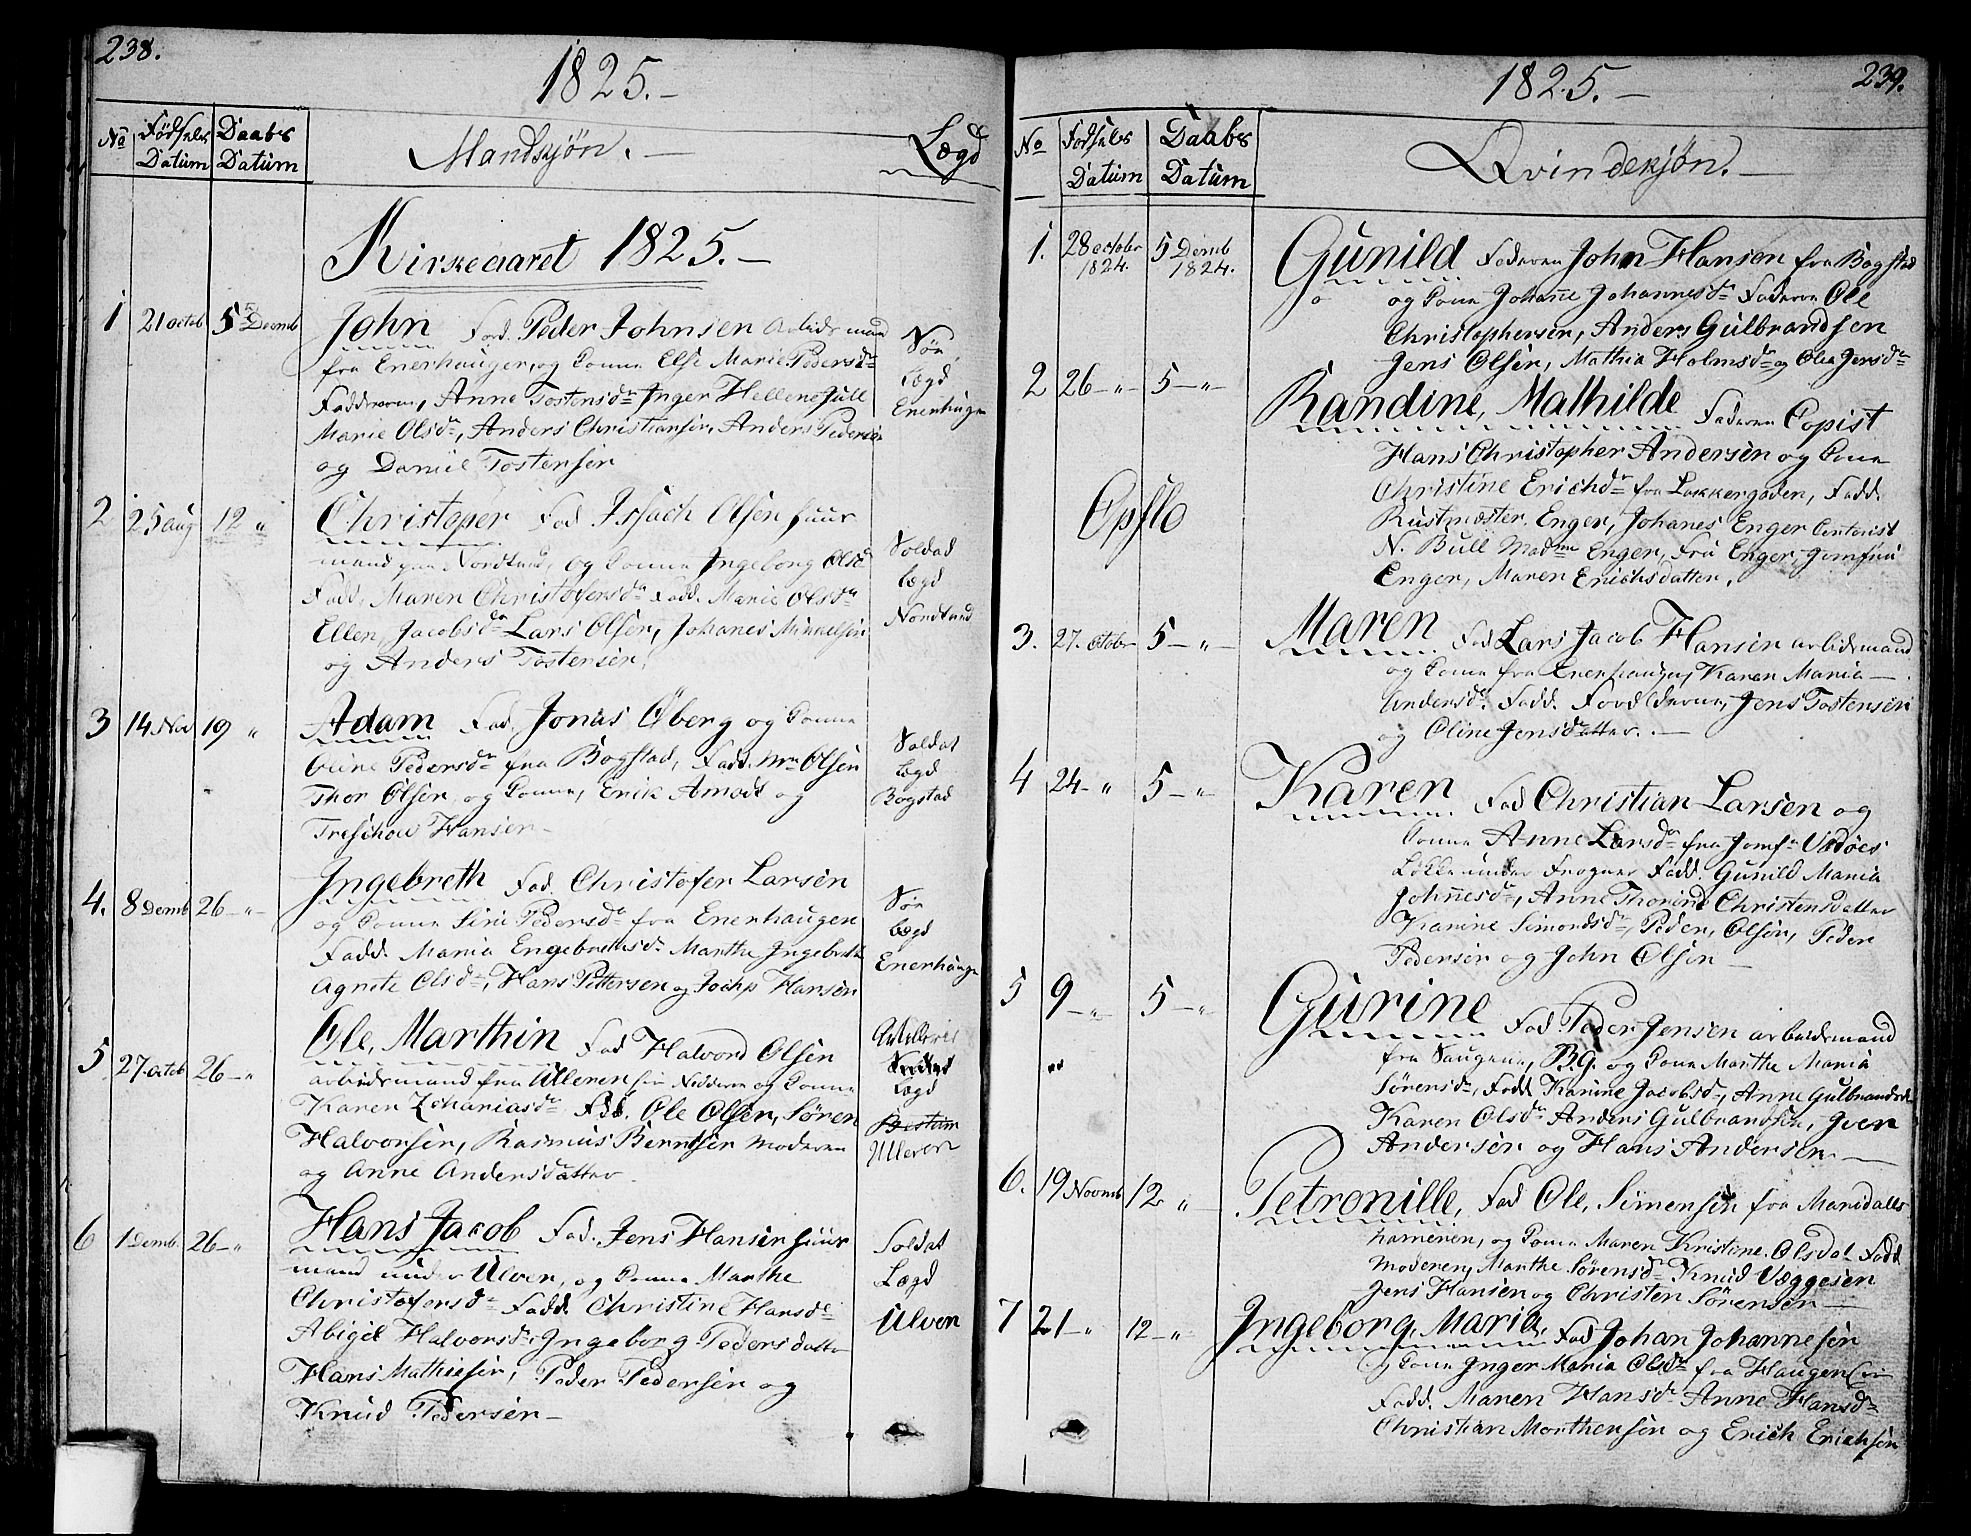 238.
1825.-
No Fødsels Datum Daabs Datum Mandkjøn.- Lægd
Kirkeaaret 1825.-
1 21 octob 5te Decmb John Fad. Peder Johnsen arbeidsmand
fra Enerhaugen, og Kone Else Marie Pedersdr
Fadderne, Anne Tostensdr Inger Hellene Jull
Marie Olsdr, Anders Christiansen, Anders Pedersen
og Daniel Tostensen
Sør
Lægd
Enerhaugen
2 25 aug 12 " Christoper Fad Issach Olsen huus
mand paa Nordtvedt, og Kone Ingeborg Olsd
Fadd. Maren Christofersdr Fadd. Marie Olsdr
Ellen Jacobsdr Lars Olsen, Johanes Mikkelsen
og Anders Tostensen.
Soldat
Lægd
3 14 Nov 19 " Adam Fad. Jonas Øberg og Kone
Oline Pedersdr fra Bogstad, Fadd. Mrn Olsen
Thor Olsen, og Kone, Erik Amodt og
Treschow Hansen-
Soldat
Lægd
Bogstad
4. 8 Decmb 26-"- Ingebreth Fad. Christofer Larsen
og Kone Siri Pedersdr fra Enerhaugen
Fadd. Maria Engebrethsdr Marthe Ingebreth
Agnete Olsdr, Hans Pettersen og Joehp Hansen
Sør
Lægd
Enerhauge
5 27 octob 26-" Ole, Marthin Fad Halvord Olsen
arbeidsmand fra Ulleren og Kone
Karen Zchariasdr Fdd. Ole Olsen, Søren
Halvorsen, Rasmus Berntsen Moderen
og Anne Andersdatter
Lægd
Bestum
Ulleren
6 1 Decmb. 26-" Hans Jacob Fad. Jens Hansen huus
mand under Ulven, og Kone Marthe
Christofersdr Fadd. Christine Hansdr
Abigel Halvorsdr, Ingeborg Pedersdatter
Hans Mathiesen, Peder Pedersen og
Knud Pedersen-
Soldat
Lægd
Ulven
1825.-
239.
No Fødsels Datum Daabs Datum Qvindekjøn.-
1. 28 octobr 1824. 5 Decmb 1824. Gunild Faderen John Hansen fra Bogstad
og Kone Johane Johannesdr Fadderne Ole
Christophersen, Anders Gulbrandsen
Jens Olsen, Mathia Holmsdr og Olea Jensdr
2 26-"- 5-"- Randine, Mathilde Faderen Copist
Hans Christopher Andersen og Kone
Christine Erichdr fra Lakkergaden, Fadd.
Rustmester Enger, Johanes Enger Contorist
N. Bull Madme Enger, Fru Enger, Jomfru
Enger, Maren Erichsdatter.
Opslo
3. 27. octobr 5-"- Maren Fad Lars Jacob Hansen arbeidsmand
og Kone fra Enerhaugen, Karen Maria-
Andersdr Fadd. Forældrene, Jens Tostensen
og Oline Jensdatter.-
4 24-" 5-"- Karen Fad Christian Larsen og
Kone Anne Larsdr fra Jomfr
Løkke under Frogner Fadd. Gunild Maria
Johnesdr, Anne Thorine Christensdatter
Karine Simonsdr, Peder, Olsen, Peder
Pedersen og John Olsen-
5 9-"- 5-"- Gurine Fad. Peder Jensen arbeidsmand
fra Saugene, B.G. og Kone Marthe Maria
Sørensdr, Fadd. Karine Jacobsdr, Anne Gulbrandsdr
Karen Olsdr Anders Gulbrandsen, Iver
Andersen og Hans Andersen.-
6. 19 Novmb 12 "- Petronille, Fad Ole, Simensen fra Maridals
hameren, og Kone Maren Kristine Olsdat Fadd
Moderen, Marthe Sørensdr Knud Væggesen
Jens Hansen og Christen Sørensen-
7 21-" 12-"- Ingeborg, Maria, Fad Johan Johannesen
og Kone Inger Maria Olsdr fra Haugen
Fadd. Maren Hansdr Anne Hansdr
Christian Morthensen og Erich Erichsen